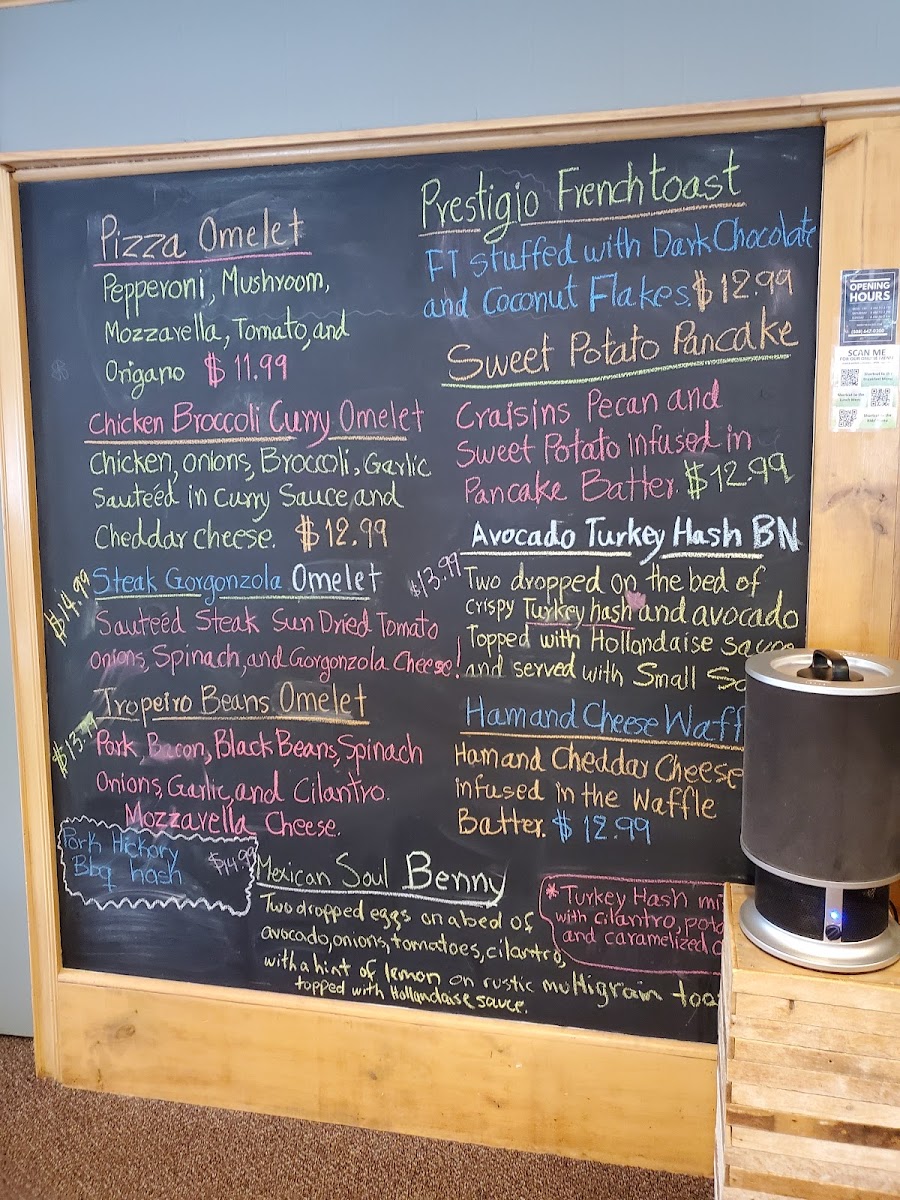 Pizza Omelet
Pepperoni, Mushroom,
Mozzarella, Tomato, and
Origano $11.99
Chicken Broccoli Curry Omelet
Chicken, onions, Broccoli, Garlic
Sauteéd in curry Sauce and
Cheddar cheese. $12.99
$14.99
Steak Gorgonzola Omelet
Sauteéd Steak Sun Dried Tomato
onions, Spinach, and Gorgonzola Cheese!
Tropeiro Beans Omelet
$13.99
Pork, Bacon, Black Beans, Spinach
Onions, Garlic, and Cilantro.
Mozzarella Cheese.
Pork Hickory
Bbq hash $14.99
Prestigio French toast
FT stuffed with Dark Chocolate
and Coconut Flakes $12.99
Sweet Potato Pancake
Craisins Pecan and
Sweet Potato infused in
Pancake Batter. $12.99
Avocado Turkey Hash BN
$13.99
Two dropped on the bed of
crispy Turkey hash and avocado
Topped with Hollandaise sauce
and served with Small
Ham and Cheese Waff
Ham and Cheddar Cheese
infused in the Waffle
Batter. $12.99
Mexican Soul Benny
Two dropped eggs on a bed of
avocado, onions, tomatoes, cilantro,
with a hint of lemon on rustic multigrain toa
topped with Hollandaise sauce.
*Turkey Hash mi
with cilantro, pota
and caramelized
OPENING
HOURS
SCAN ME